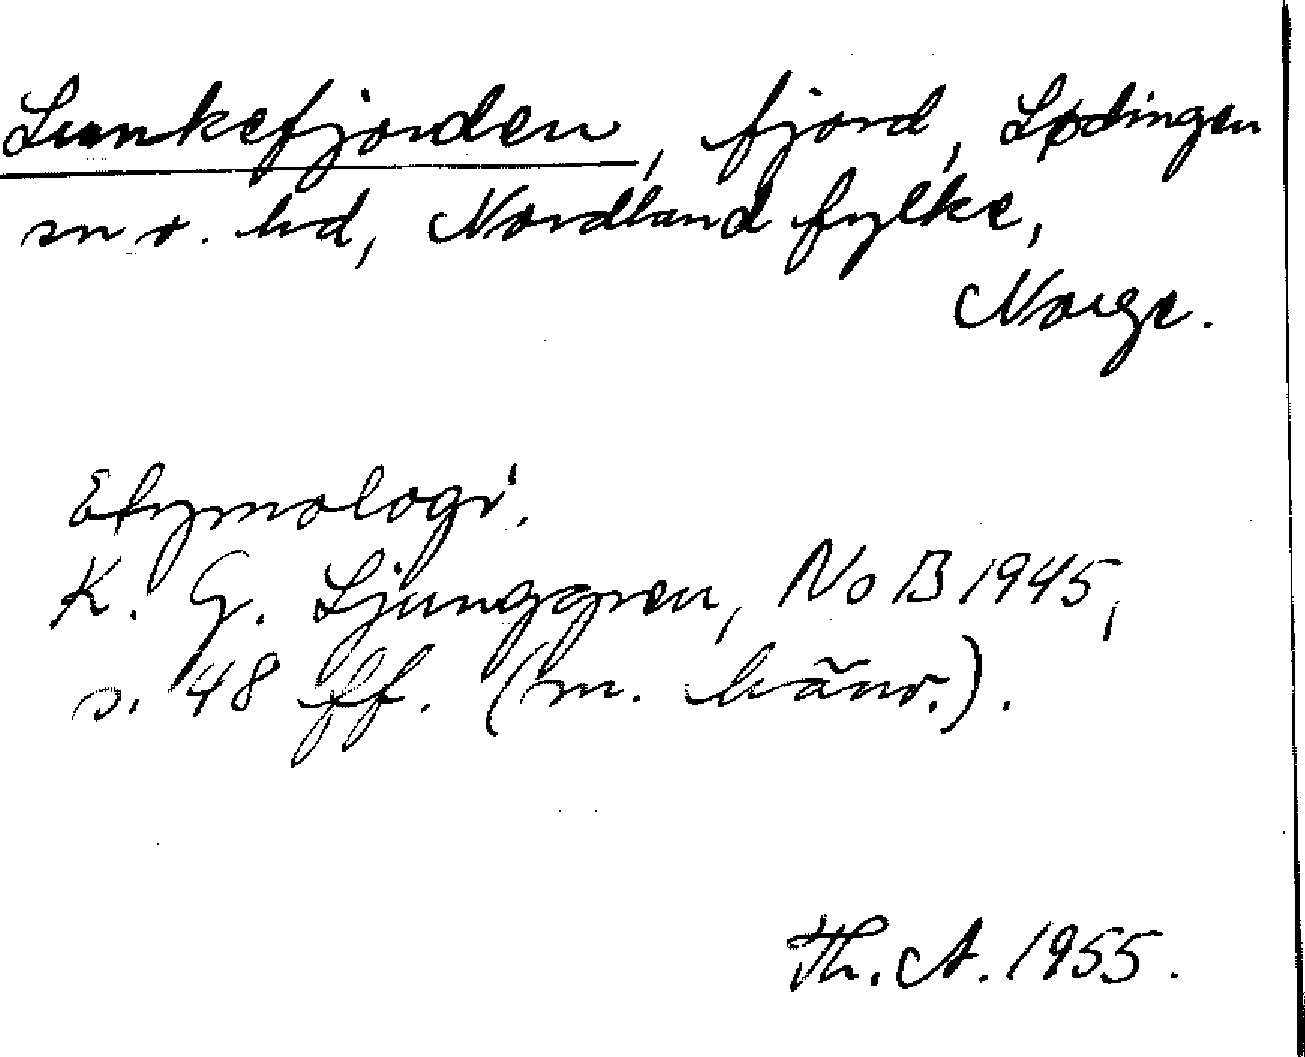 Lunkefjorden, fjord, Lødingen
sn o. hd, Nordland fylke,
Norge.
Etymologi.
K. G. Ljunggren, NoB 1945,
s. 48 ff. (m. hänv.).
Th. A. 1955.